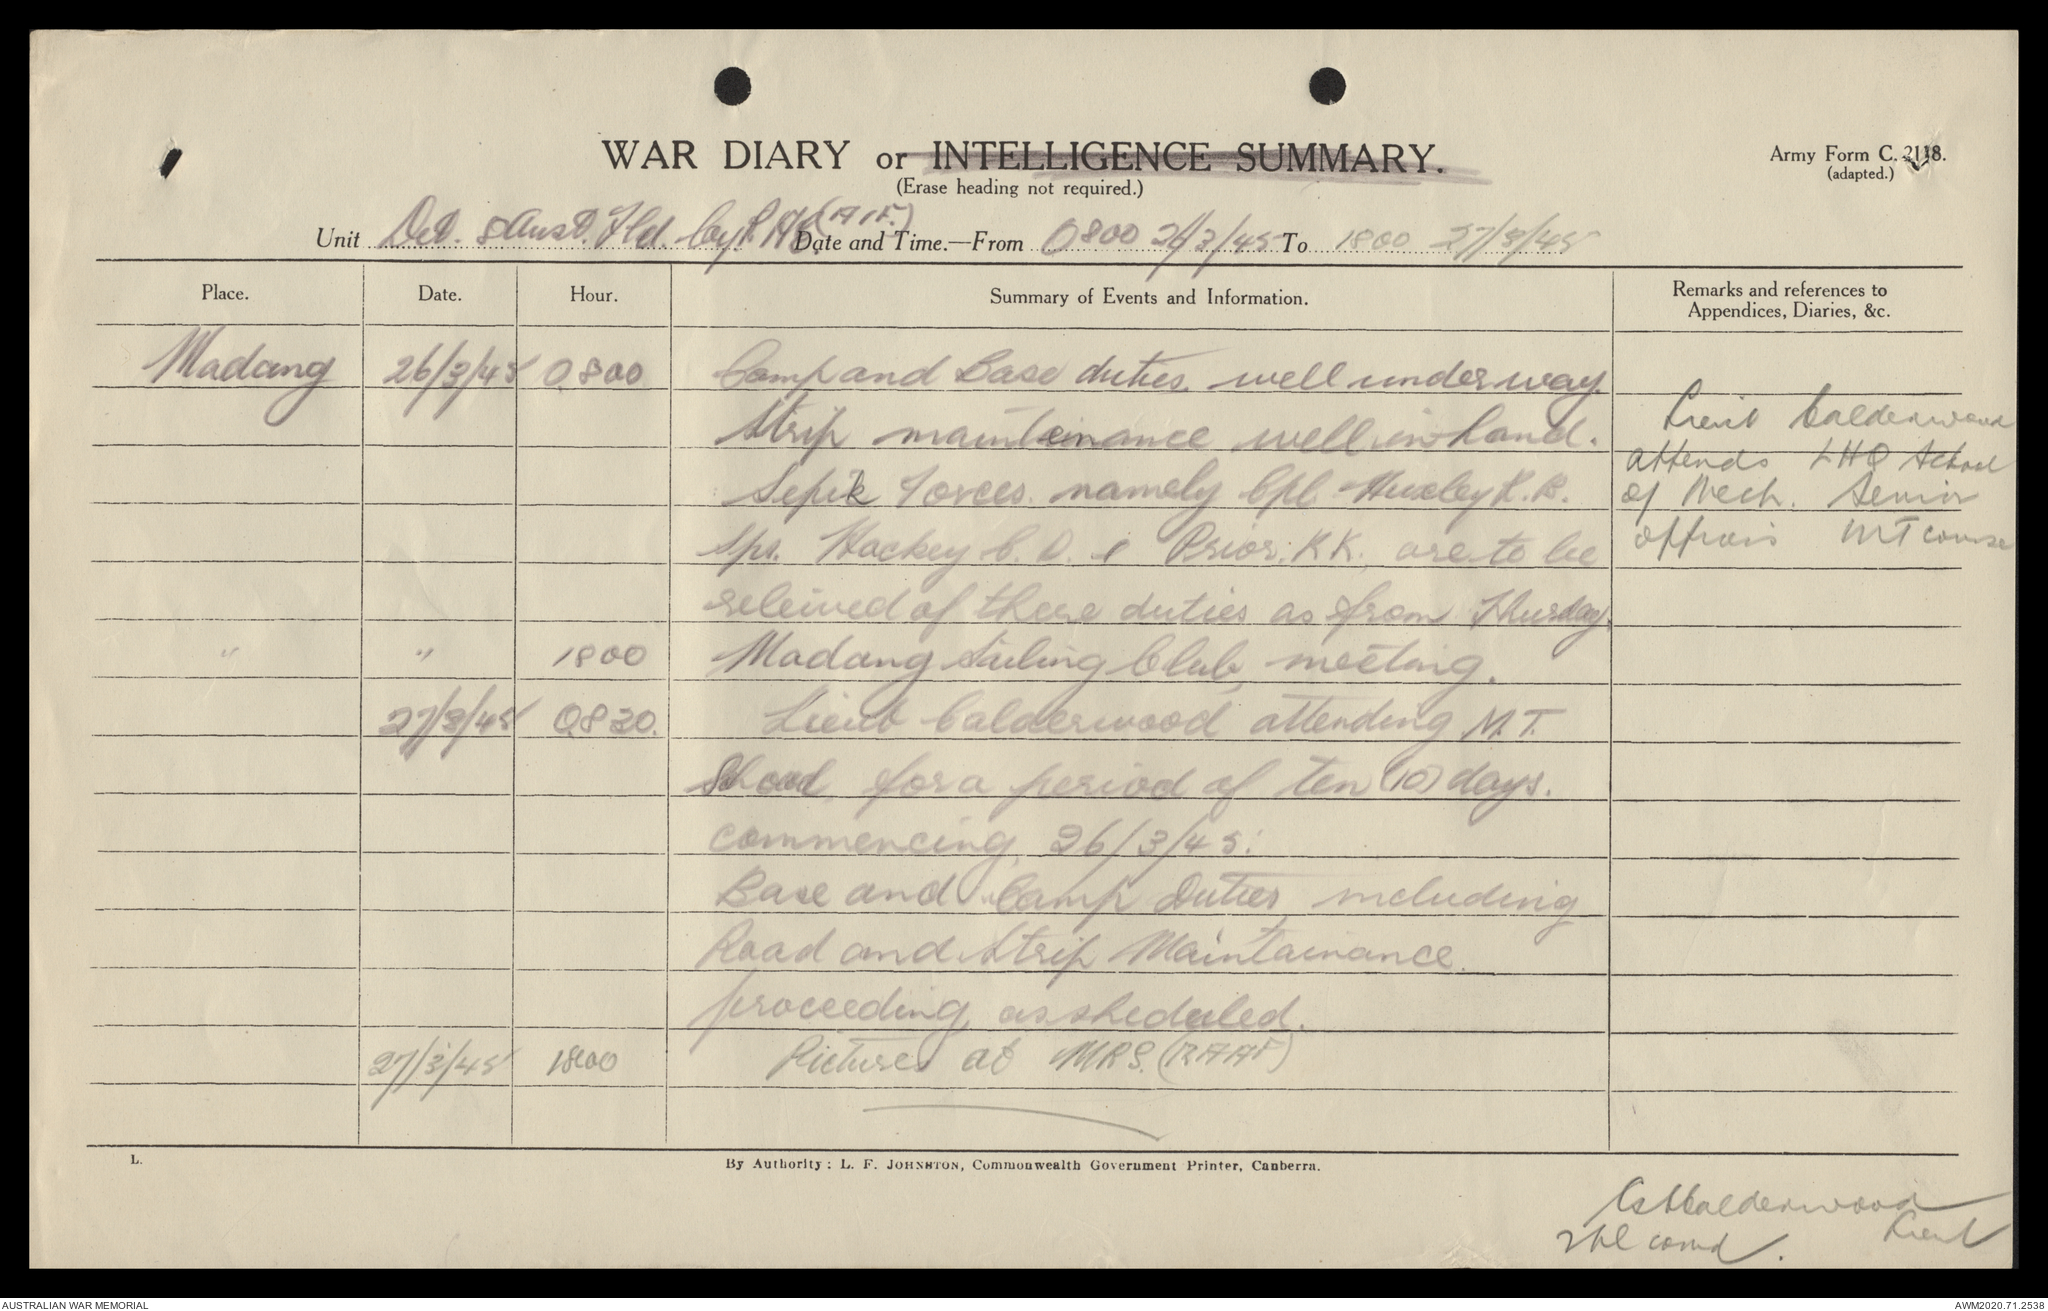 WAR DIARY or INTELLIGENCE SUMMARY.
(Erase heading not required.)
Army Form C. 2118.
(adapted.)
Unit Det. 8 Aust. Fld. Coy R.A.E. (A.I.F.) Date and Time.—From 0800 26/3/45 To 1800 27/3/45
Place. Date. Hour. Summary of Events and Information. Remarks and references to
Appendices, Diaries, &c.
Madang 26/3/45 0800 Camp and Base duties well under way.
Strip mainteinance well in hand.
Sepik Forces namely Cpl Huxley R.R.
Sps. Hackey C.D. & Prior, K.K. are to be
releived of these duties as from Thursday.
" " 1800 Madang Sailing Club, meeting.
27/3/45 0830. Lieut Calderwood attending M.T.
School, for a period of ten (10) days.
commencing 26/3/45.
Base and Camp Duties including
Road and Strip Maintainance
proceeding as sheduled.
27/3/45 1800 Pictures at MRS. (RAAF)
Lieut Calderwood
attends LHQ School
of Mech. Senior
officers MT course
L.
By Authority: L. F. JOHNSTON, Commonwealth Government Printer, Canberra.
Calderwood
Lieut
comd.
AUSTRALIAN WAR MEMORIAL
AWM2020.71.2538